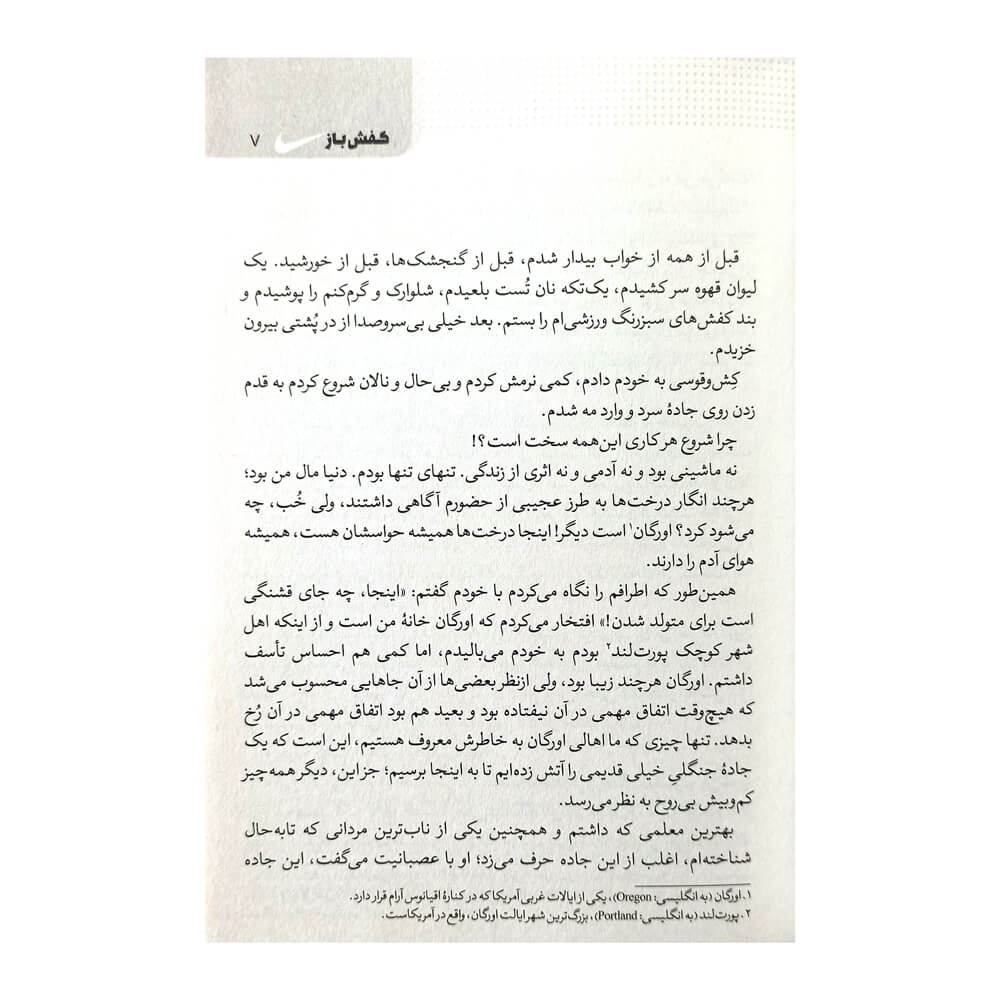 کفش‌باز ۷
قبل از همه از خواب بیدار شدم، قبل از گنجشک‌ها، قبل از خورشید. یک
لیوان قهوه سر کشیدم، یک‌تکه نان تُست بلعیدم، شلوارک و گرم‌کنم را پوشیدم و
بند کفش‌های سبزرنگ ورزشی‌ام را بستم. بعد خیلی بی‌سروصدا از در پُشتی بیرون
خزیدم.
کِش‌وقوسی به خودم دادم، کمی نرمش کردم و بی‌حال و نالان شروع کردم به قدم
زدن روی جادهٔ سرد و وارد مه شدم.
چرا شروع هر کاری این‌همه سخت است؟!
نه ماشینی بود و نه آدمی و نه اثری از زندگی. تنهای تنها بودم. دنیا مال من بود؛
هرچند انگار درخت‌ها به طرز عجیبی از حضورم آگاهی داشتند، ولی خُب، چه
می‌شود کرد؟ اورگان۱ است دیگر! اینجا درخت‌ها همیشه حواسشان هست، همیشه
هوای آدم را دارند.
همین‌طور که اطرافم را نگاه می‌کردم با خودم گفتم: «اینجا، چه جای قشنگی
است برای متولد شدن!» افتخار می‌کردم که اورگان خانهٔ من است و از اینکه اهل
شهر کوچک پورت‌لند۲ بودم به خودم می‌بالیدم، اما کمی هم احساس تأسف
داشتم. اورگان هرچند زیبا بود، ولی ازنظر بعضی‌ها از آن جاهایی محسوب می‌شد
که هیچ‌وقت اتفاق مهمی در آن نیفتاده بود و بعید هم بود اتفاق مهمی در آن رُخ
بدهد. تنها چیزی که ما اهالی اورگان به خاطرش معروف هستیم، این است که یک
جادهٔ جنگلیِ خیلی قدیمی را آتش زده‌ایم تا به اینجا برسیم؛ جز این، دیگر همه‌چیز
کم‌وبیش بی‌روح به نظر می‌رسد.
بهترین معلمی که داشتم و همچنین یکی از ناب‌ترین مردانی که تابه‌حال
شناخته‌ام، اغلب از این جاده حرف می‌زد؛ او با عصبانیت می‌گفت، این جاده
۱. اورگان (به انگلیسی: Oregon)، یکی از ایالات غربی آمریکا که در کنارهٔ اقیانوس آرام قرار دارد.
۲. پورت‌لند (به انگلیسی: Portland)، بزرگ‌ترین شهر ایالت اورگان، واقع در آمریکاست.